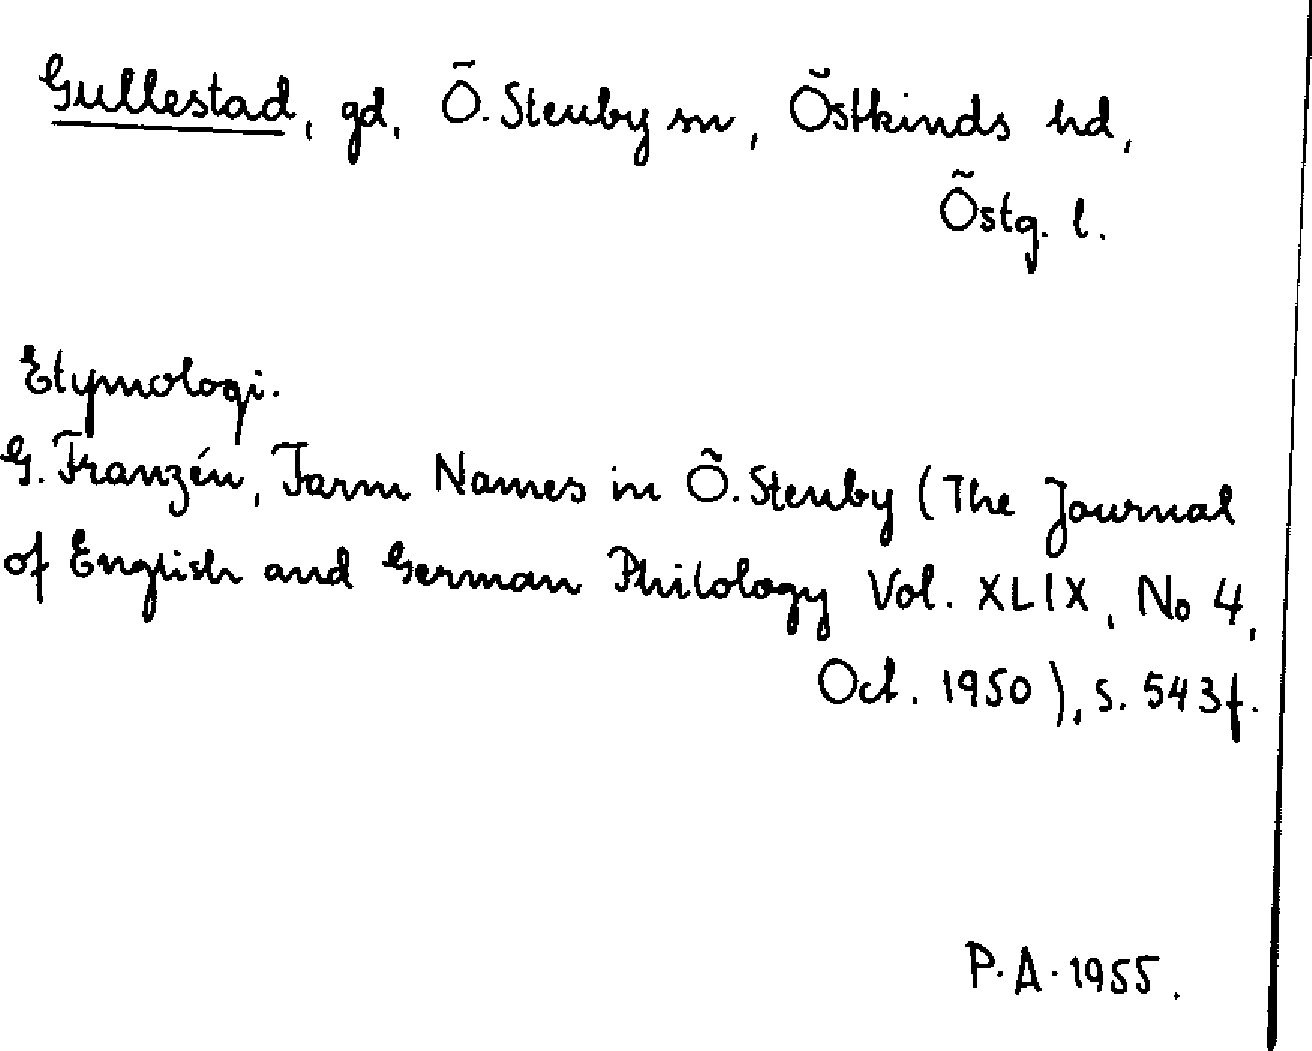 Gullestad, gd, Ö. Stenby sn, Östkinds hd,
Östg. l.
Etymologi.
G. Franzén, Farm Names in Ö. Stenby (The Journal
of English and German Philology Vol. XLIX, No 4,
Oct. 1950), s. 543f.
P.A. 1955.